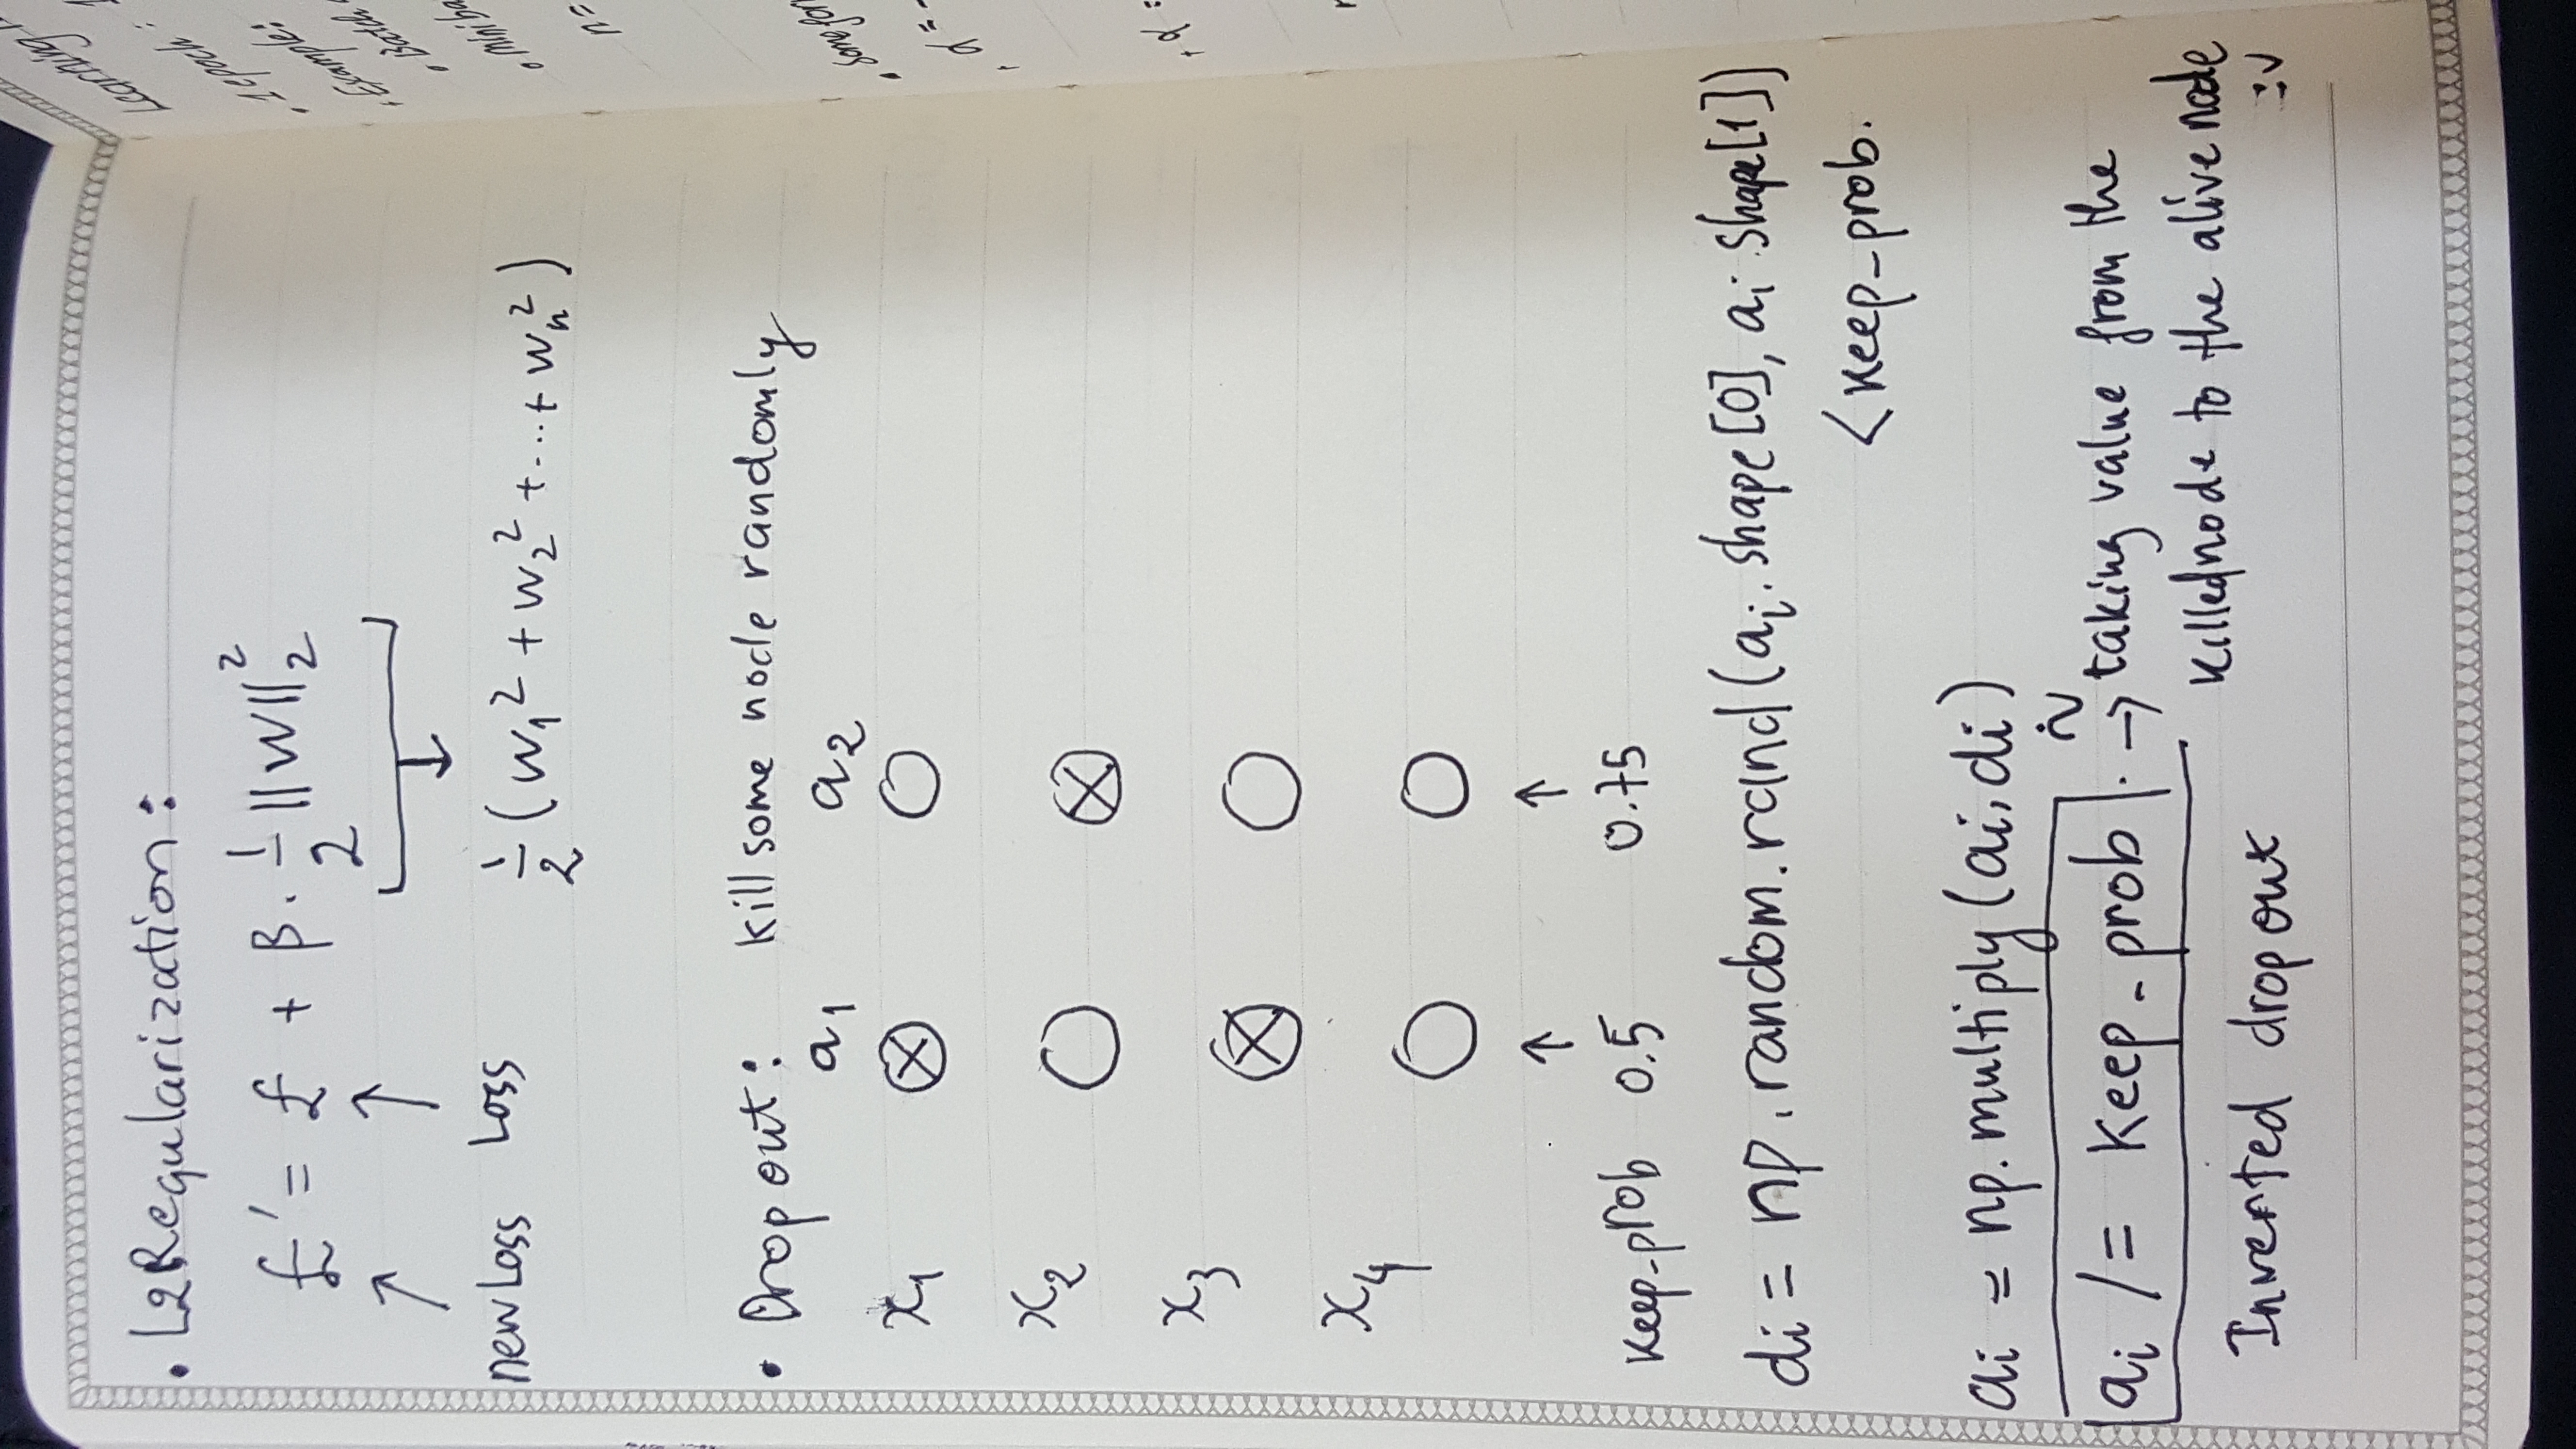 • L2 Regularization:
£' = £ + β . 1/2 ||W||₂²
new Loss Loss
1/2 (w₁² + w₂² + ... + wₙ²)
• Drop out: kill some node randomly
a₁ a₂
x₁
x₂
x₃
x₄
keep_prob 0.5 0.75
di = np.random.rand(ai.shape[0], ai.shape[1])
< keep_prob.
ai = np.multiply(ai, di)
ai /= keep_prob. → taking value from the
killed node to the alive node
:v
Inverted drop out
Learning
• 1 epoch :
+ Example:
• Batch
• Mini ba
n =
• Some for
+ α =
+ α =